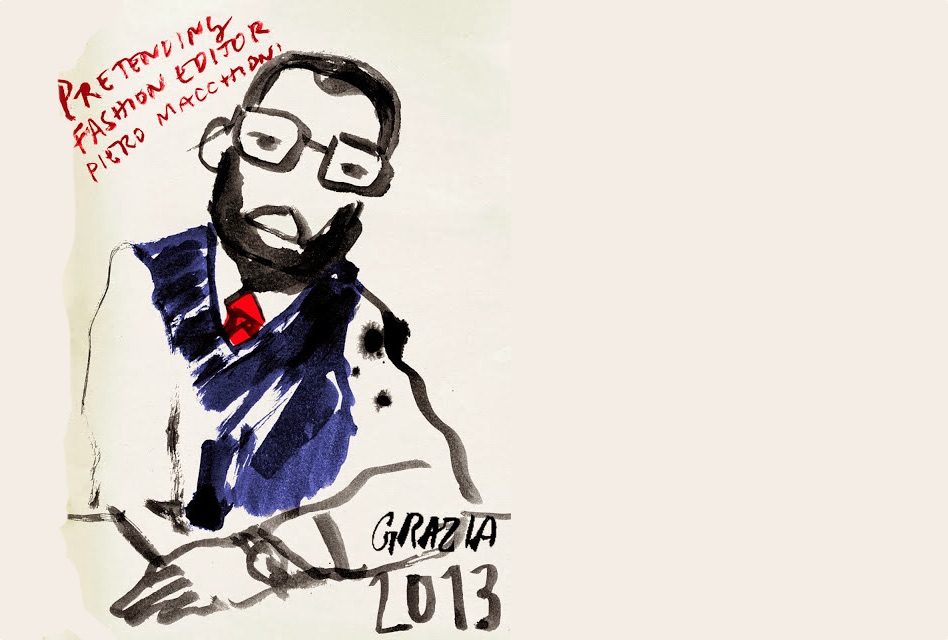 PRETENDING
FASHION EDITOR
PIERO MACCHIONI
GRAZIA
2013